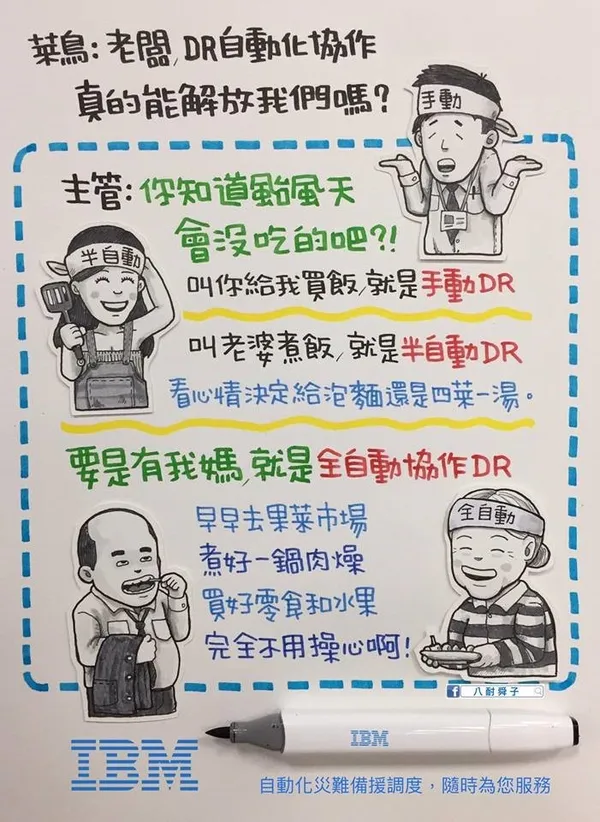 菜鳥:老闆,DR自動化協作
真的能解放我們嗎?
手動
主管:你知道颱風天
會沒吃的吧?!
半自動
叫你給我買飯,就是手動DR
叫老婆煮飯,就是半自動DR
看心情決定給泡麵還是四菜一湯。
要是有我媽,就是全自動協作DR
全自動
早早去果菜市場
煮好一鍋肉燥
買好零食和水果
完全不用操心啊!
f 八耐舜子
IBM
IBM
自動化災難備援調度,隨時為您服務